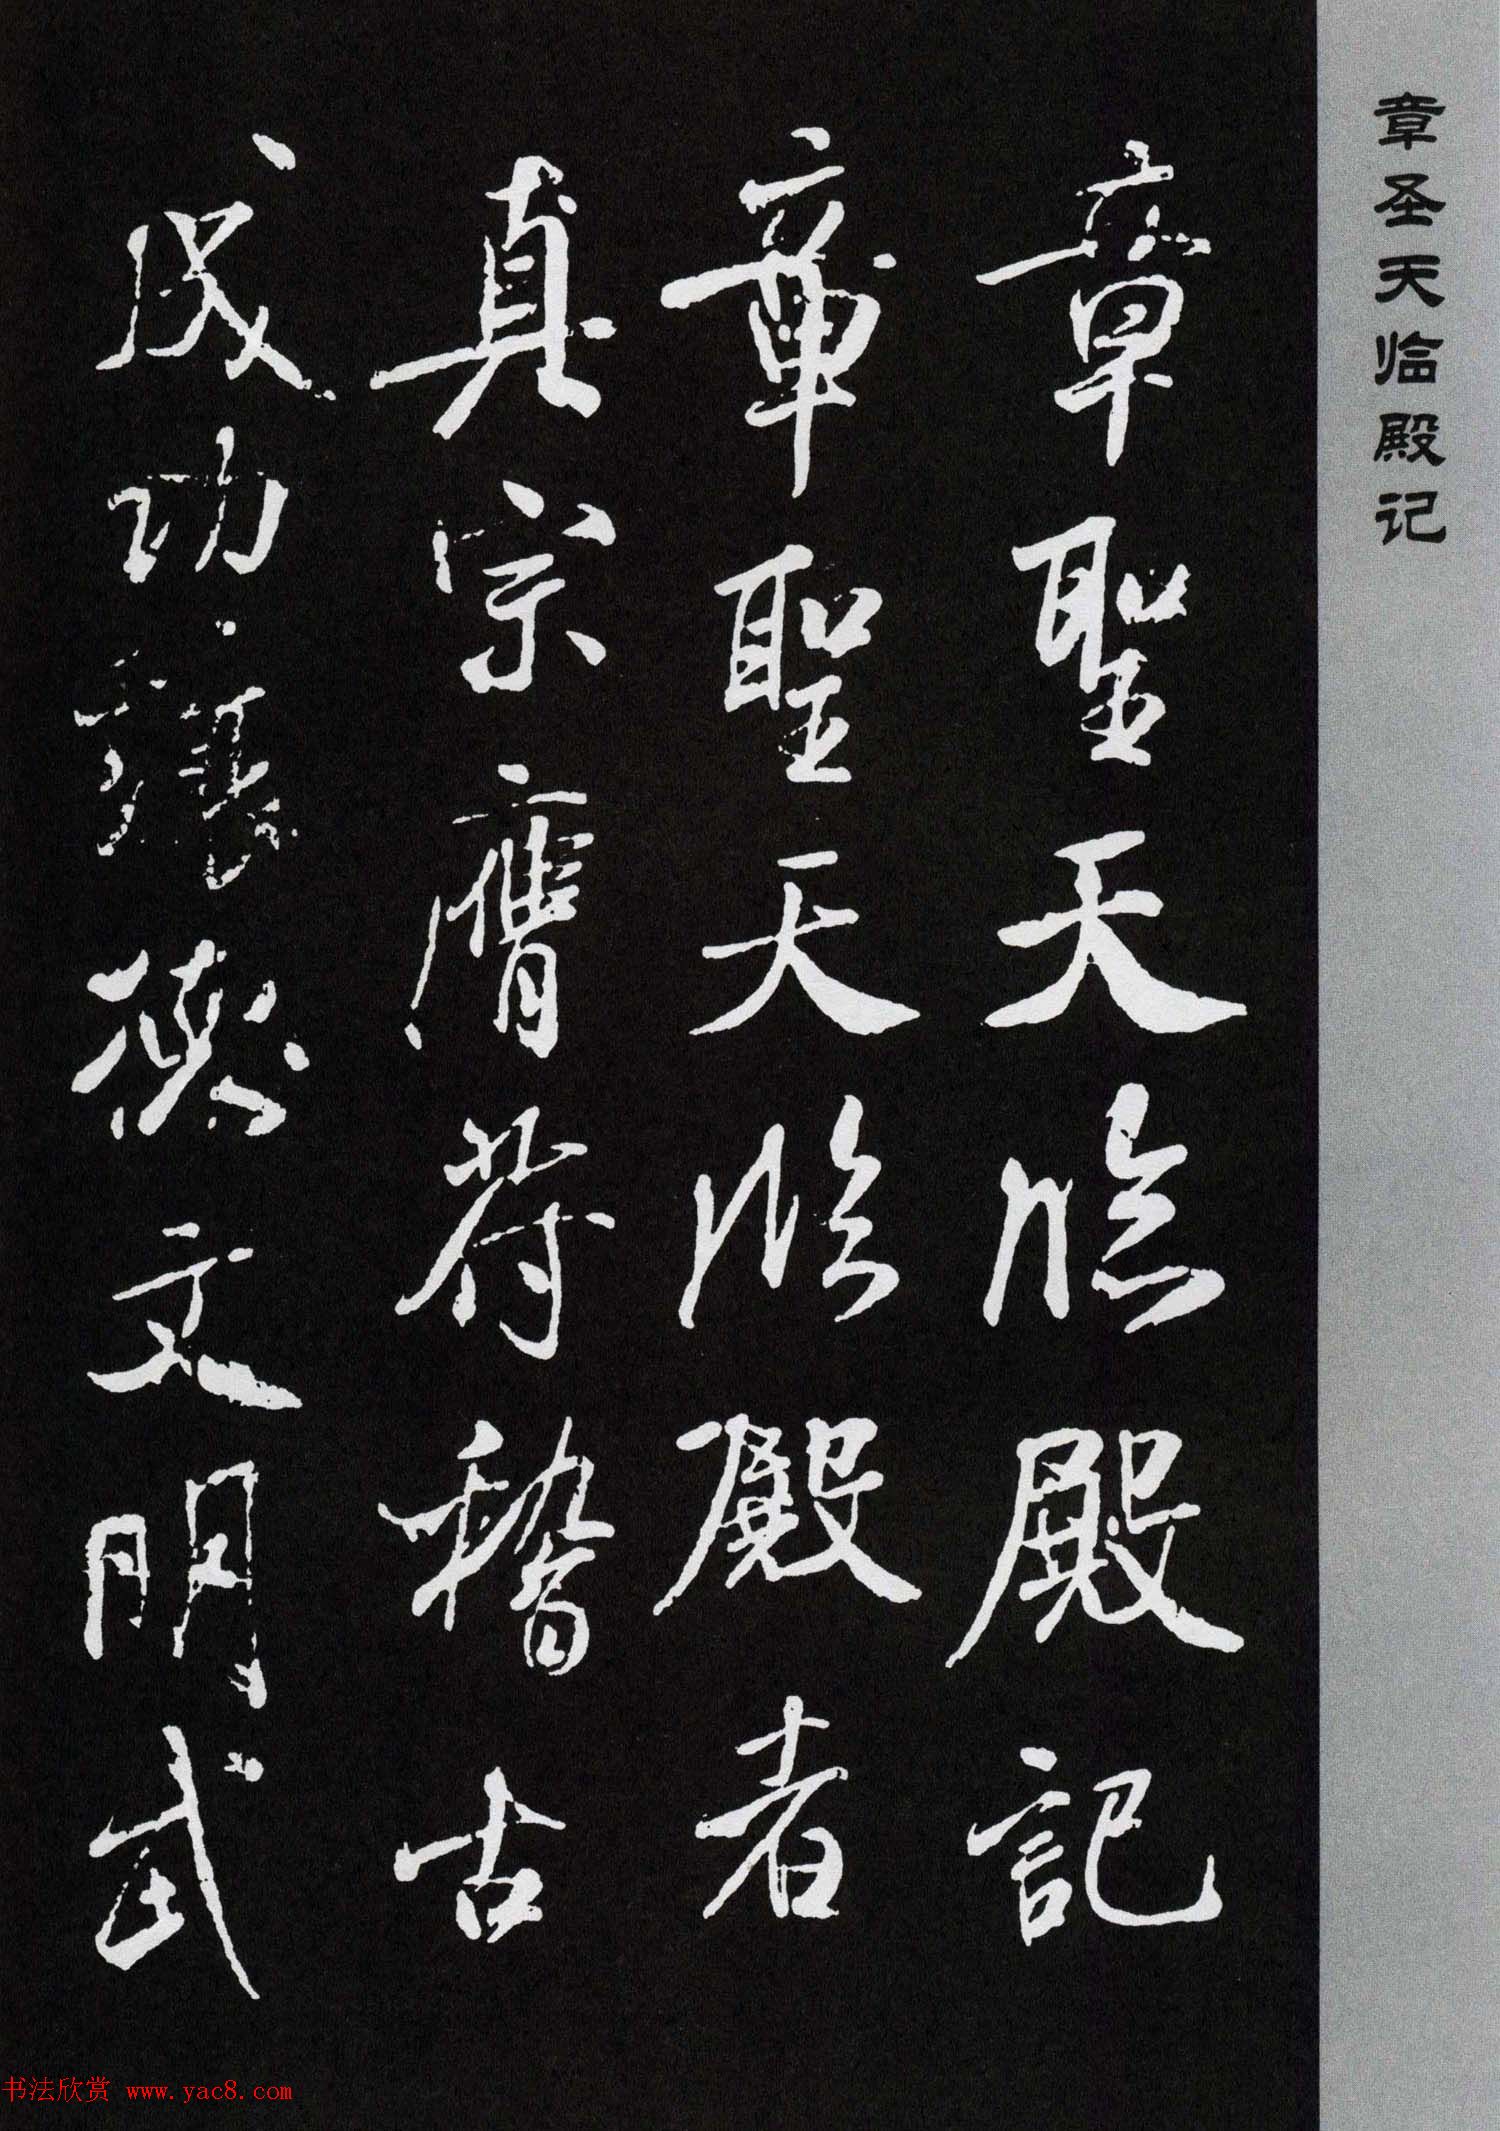 章圣天临殿记
章聖天臨殿記
章聖天臨殿者
真宗膺符稽古
成功讓德文明武
书法欣赏 www.yac8.com